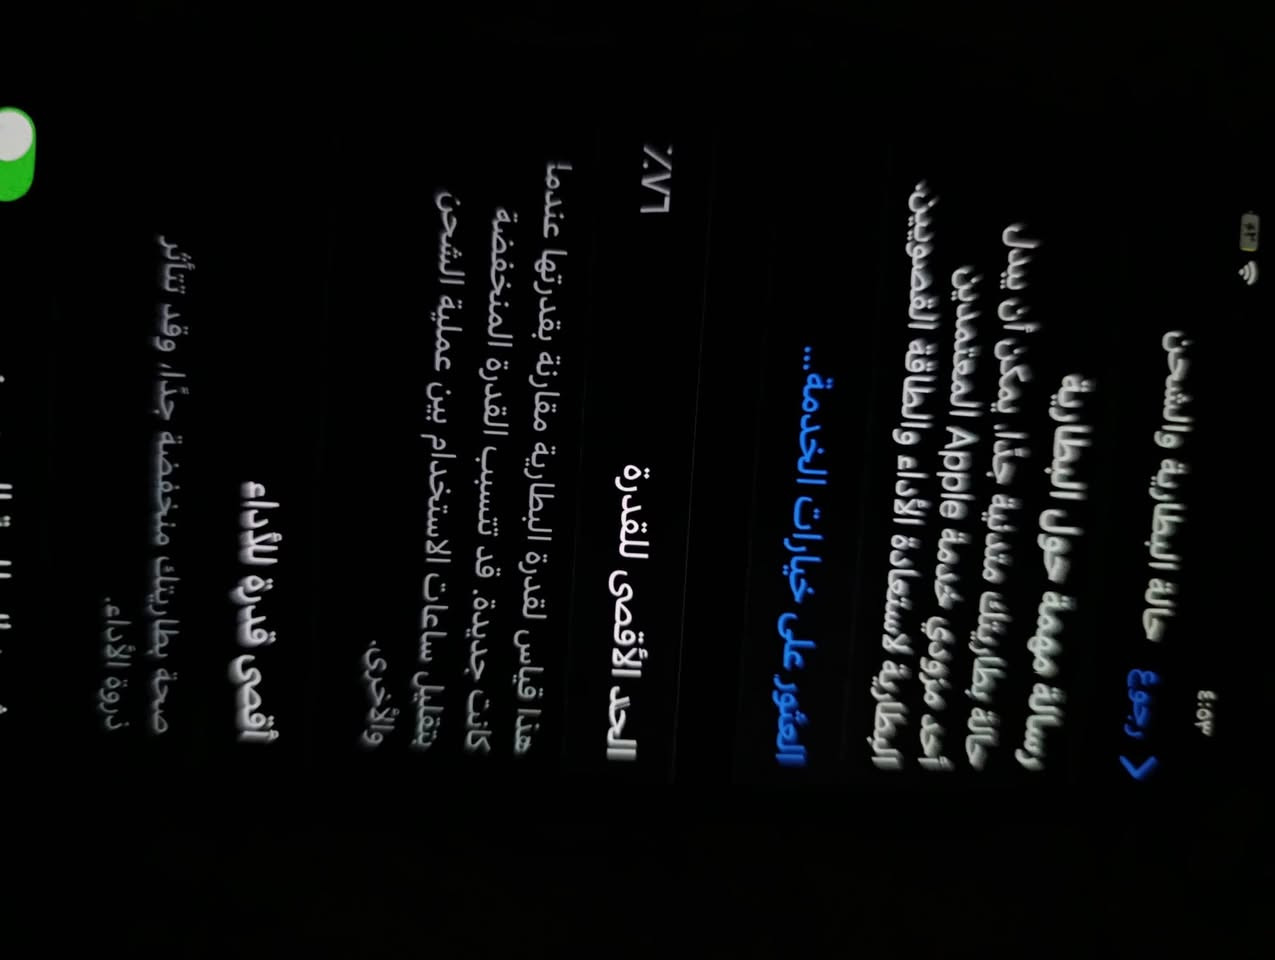 ٤:٥٣
رجوع
حالة البطارية والشحن
رسالة مهمة حول البطارية
حالة بطاريتك متدنية جدًا. يمكن أن يبدل
أحد مزودي خدمة Apple المعتمدين
البطارية لاستعادة الأداء والطاقة القصويين.
العثور على خيارات الخدمة...
الحد الأقصى للقدرة ٧٦٪
هذا قياس لقدرة البطارية مقارنة بقدرتها عندما
كانت جديدة. قد تتسبب القدرة المنخفضة
بتقليل ساعات الاستخدام بين عملية الشحن
والأخرى.
أقصى قدرة للأداء
صحة بطاريتك منخفضة جدًا، وقد تتأثر
ذروة الأداء.